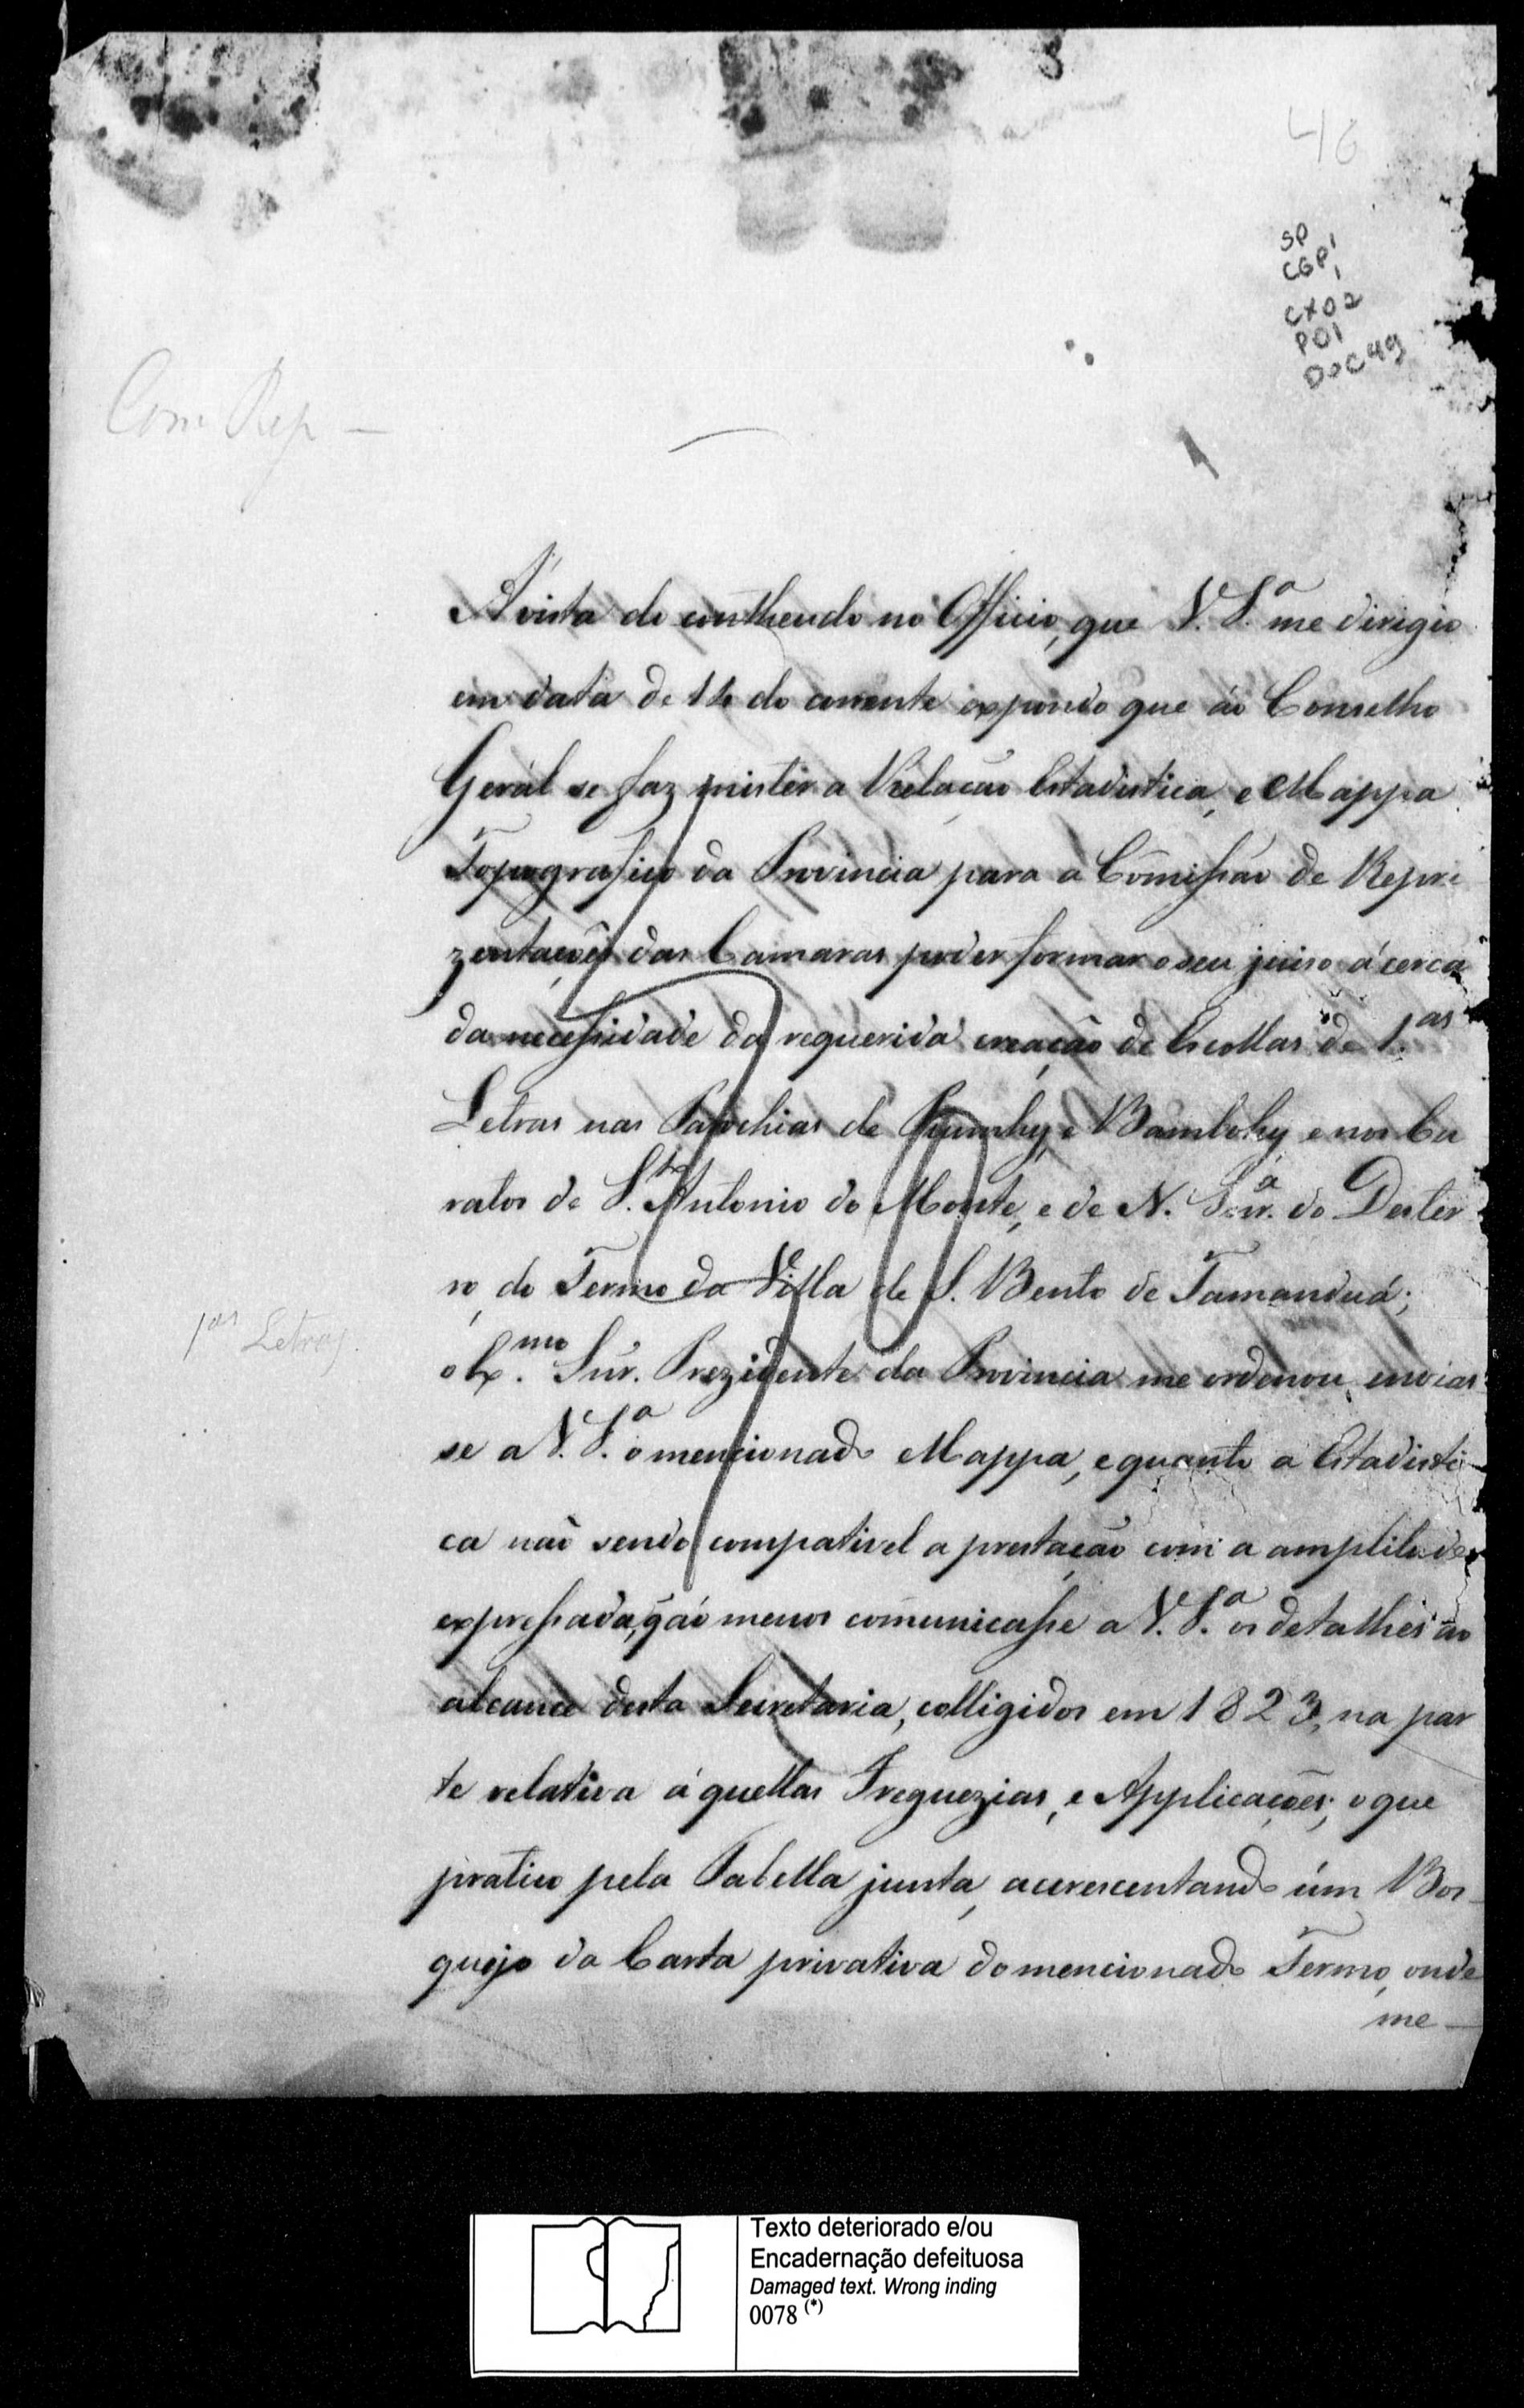 46
SP
CGP1
CX02
P01
DOC49
Com Rep —
A' vista do contheudo no Officio, que V. S.ª me dirigio
em data de 14 do corrente expondo que áo Conselho
Geral se faz mister a Relação Estadistica, e Mappa
Topografico da Provincia para a Comissão de Repre
zentações das Camaras poder formar o seu juiso ácerca
da necessidade da requerida creação de Escollas de 1.as
Letras nas Parochias de Piumhy, e Bambohy, e nos Cu
ratos de S.to Antonio do Monte, e de N. Snr.ª do Dester
ro, do Termo da Villa de S. Bento de Tamanduá;
1as Letras.
o Ex.mo Snr. Prezidente da Provincia me ordenou envias
se a V. S.ª o mencionado Mappa, e quanto a Estadisti
ca não sendo compativel a prestação com a amplitude
expressada, q̃ áo menos comunicasse a V. S.ª os detalhes ao
alcance desta Secretaria, colligidos em 1823, na par
te relativa á quellas Freguezias, e Applicações; o que
pratico pela Tabella junta, acrescentando úm Bos-
quejo da Carta privativa do mencionado Termo, onde
me —
Texto deteriorado e/ou
Encadernação defeituosa
Damaged text. Wrong inding
0078 (*)